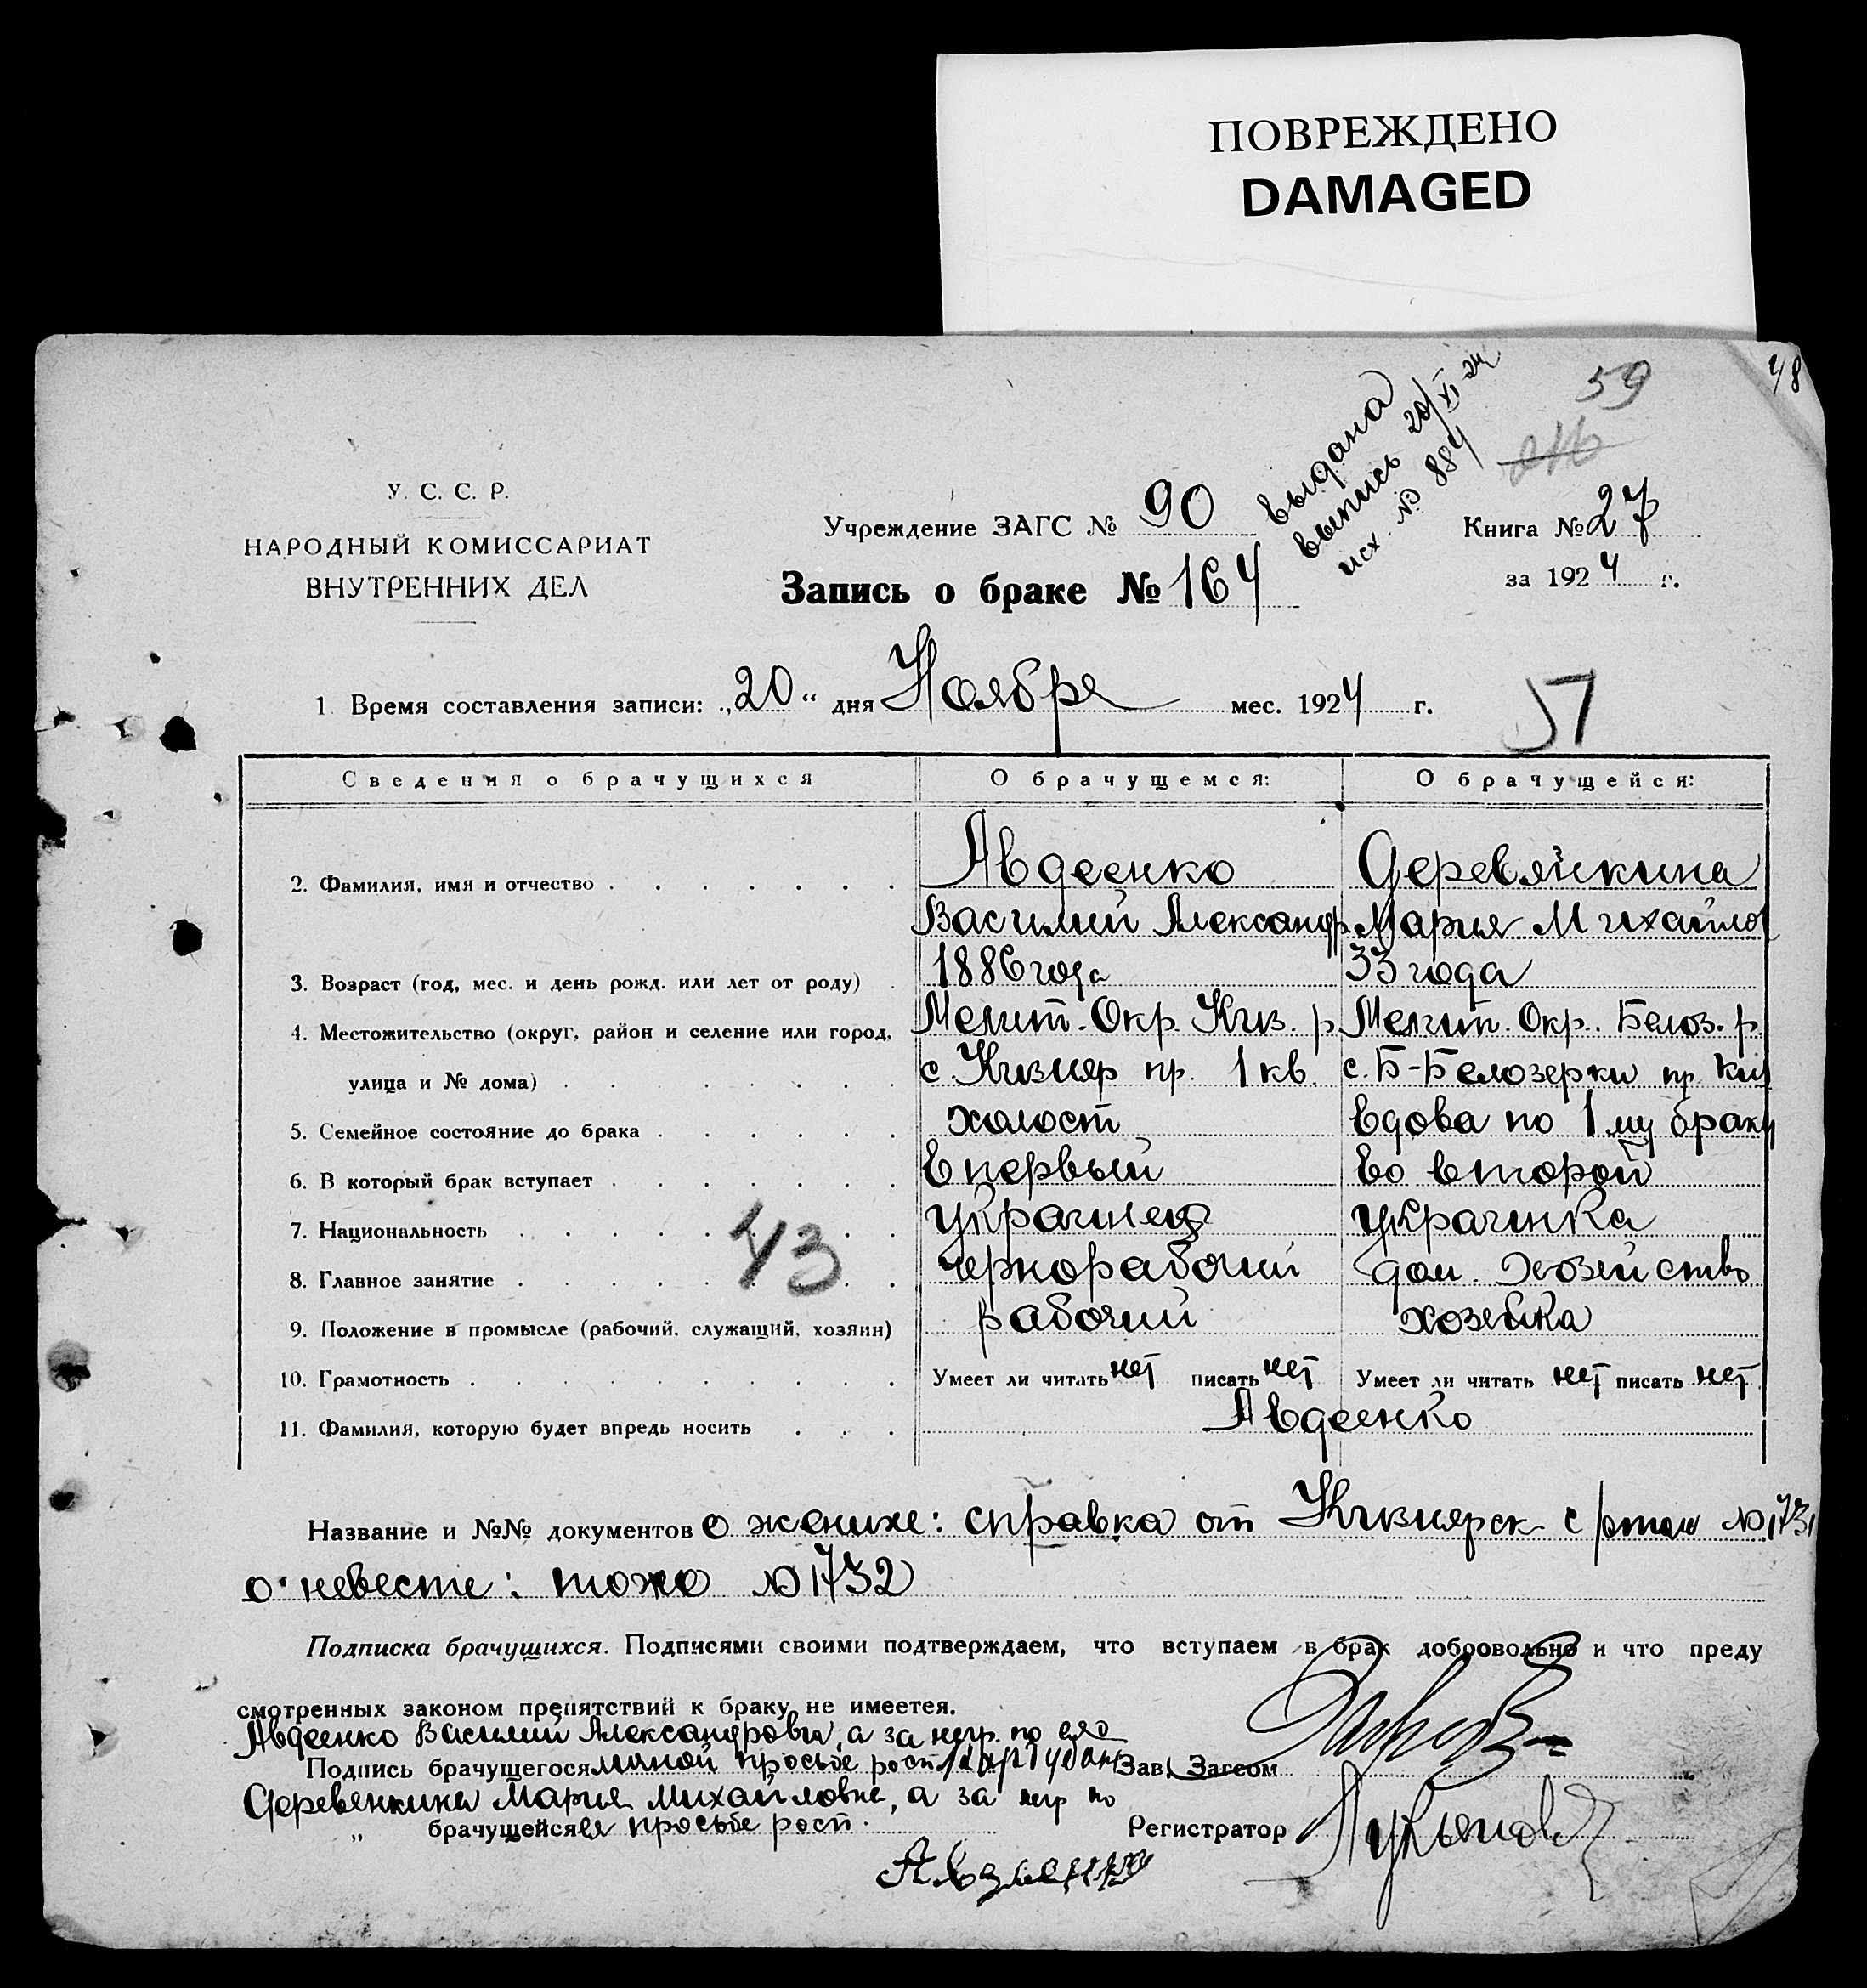 ПОВРЕЖДЕНО
DAMAGED
48
59
выдана
выпись 20/XI-24
исх. № 884
У. С. С. Р.
НАРОДНЫЙ КОМИССАРИАТ
ВНУТРЕННИХ ДЕЛ
Учреждение ЗАГС № 90
Книга № 27
за 1924 г.
Запись о браке № 164
1. Время составления записи: „20“ дня Ноября мес. 1924 г.
57
Сведения о брачущихся О брачущемся: О брачущейся:
2. Фамилия, имя и отчество Авдеенко Деревянкина
Василий Александр. Мария Михайлов
3. Возраст (год, мес. и день рожд. или лет от роду) 1886 года 33 года
4. Местожительство (округ, район и селение или город, Мелит. Окр. Киз. р. Мелит. Окр. Белоз. р.
улица и № дома) с. Кизияр пр. 1 кв. с. Б-Белозерки пр.
5. Семейное состояние до брака холост вдова по 1му браку
6. В который брак вступает в первый во второй
7. Национальность украинец украинка
43
8. Главное занятие чернорабочий дом. хозяйство
9. Положение в промысле (рабочий, служащий, хозяин) рабочий хозейка
10. Грамотность Умеет ли читать нет писать нет Умеет ли читать нет писать нет
11. Фамилия, которую будет впредь носить Авдеенко
Название и №№ документов о женихе: справка от Кизиярск с/ № 1731
о невесте: тоже № 1732
Подписка брачущихся. Подписями своими подтверждаем, что вступаем в брак добровольно и что преду
смотренных законом препятствий к браку не имеется.
Авдеенко Василий Александрович, а за негр. по его
Подпись брачущегося просьбе росп. Зав. Загсом
Деревенкина Мария Михайловна, а за негр по
„ брачущейся ея просьбе росп.
Регистратор Лукьянов
Авдиенко